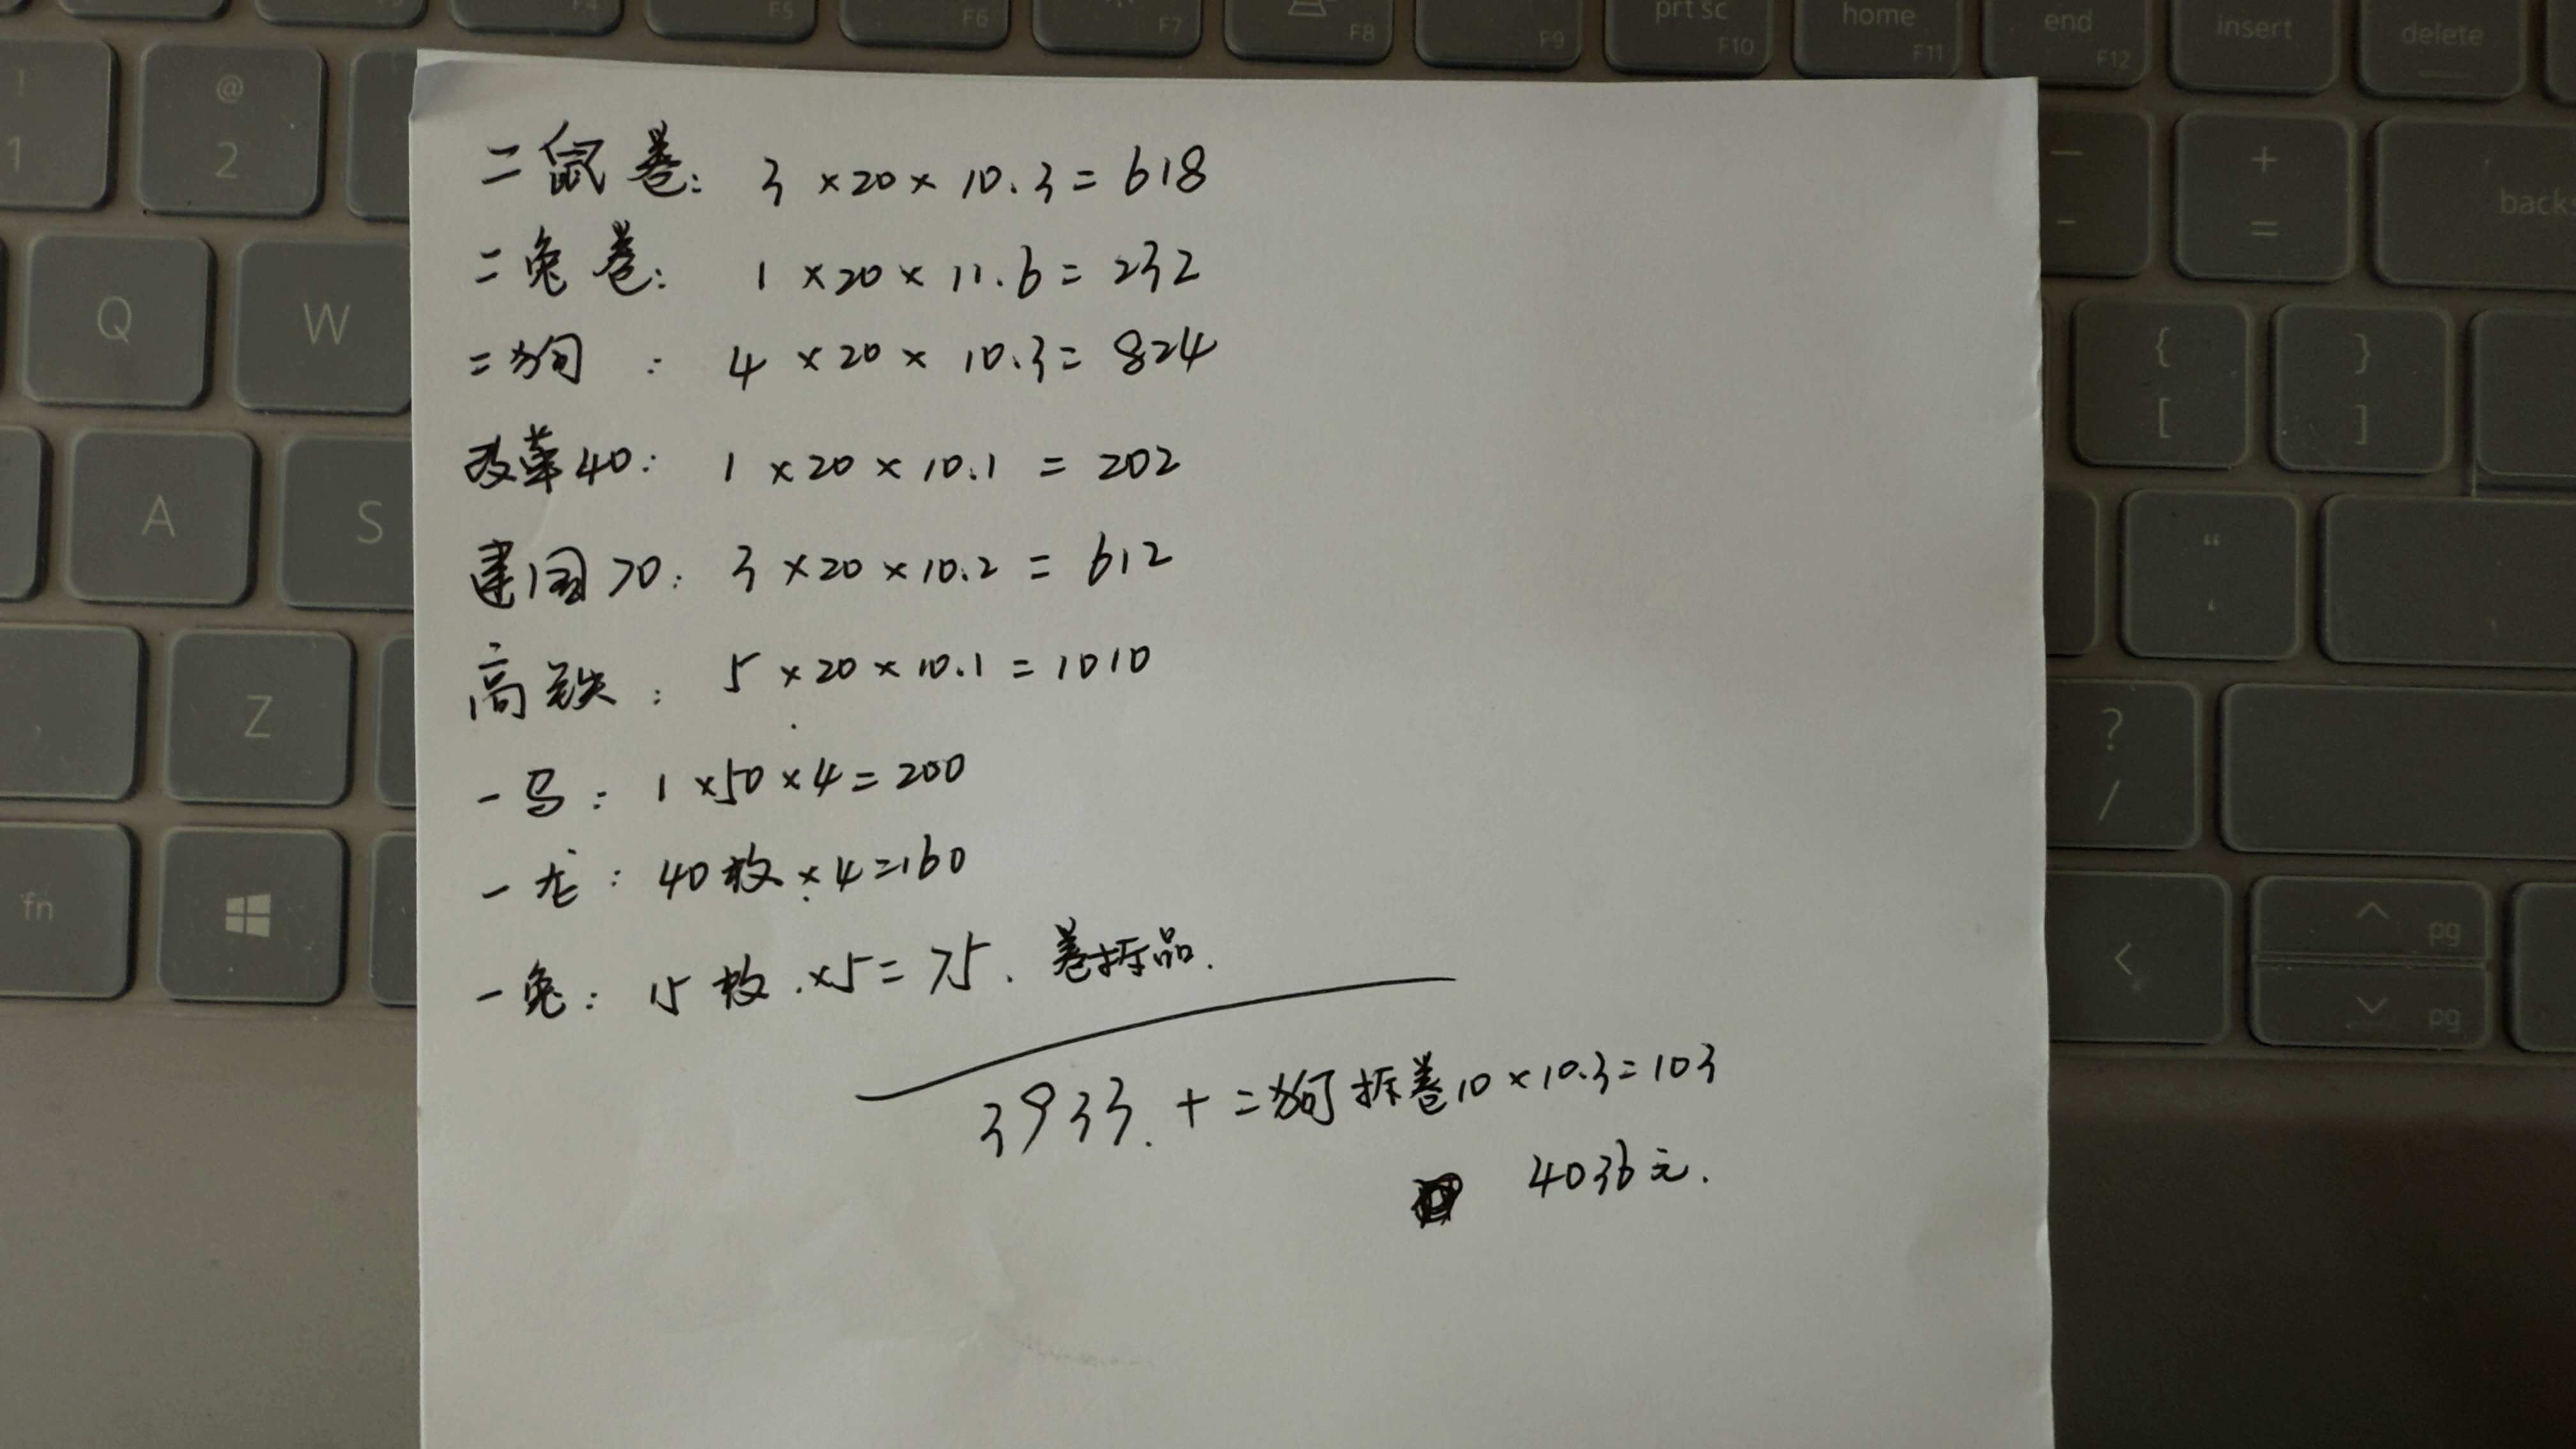 F4 F5 F6 F7 F8 F9 prt sc F10 home F11 end F12 insert delete
! 1 @ 2 — - + = back
Q W { [ } ]
A S “ ‘
Z ? /
fn < pg pg
二鼠卷: 3×20×10.3=618
二兔卷: 1×20×11.6=232
二狗: 4×20×10.3=824
改革40: 1×20×10.1=202
建国70: 3×20×10.2=612
高铁: 5×20×10.1=1010
一马: 1×50×4=200
一龙: 40枚×4=160
一兔: 15枚.×5=75. 卷拆品.
3933.+二狗拆卷10×10.3=103
4036元.